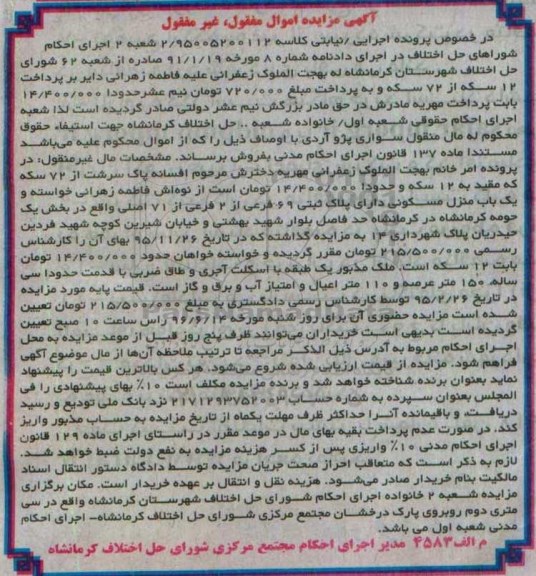 آگهی مزایده اموال مفقول، غیر مفقول
در خصوص پرونده اجرایی /نیابتی کلاسه ۲/۹۵۰۰۵۲۰۰۱۱۲ شعبه ۲ اجرای احکام
شوراهای حل اختلاف در اجرای دادنامه شماره ۸ مورخه ۹۱/۱/۱۹ صادره از شعبه ۶۲ شورای
حل اختلاف شهرستان کرمانشاه له بهجت الملوک زعفرانی علیه فاطمه زهرانی دایر بر پرداخت
۱۲ سکه از ۷۲ سکه و به پرداخت مبلغ ۷۲۰/۰۰۰ تومان نیم عشرحدودا ۱۴/۴۰۰/۰۰۰
بابت پرداخت مهریه مادرش در حق مادر بزرگش نیم عشر دولتی صادر گردیده است لذا شعبه
اجرای احکام حقوقی شعبه اول/ خانواده شعبه .. حل اختلاف کرمانشاه جهت استیفاء حقوق
محکوم له مال منقول سواری پژو آردی با اوصاف ذیل را که از اموال محکوم علیه می‌باشد
مستندا ماده ۱۳۷ قانون اجرای احکام مدنی بفروش برساند. مشخصات مال غیرمنقول: در
پرونده امر خانم بهجت الملوک زعفرانی مهریه دخترش مرحوم افسانه پاک سرشت از ۷۲ سکه
که مقید به ۱۲ سکه و حدودا ۱۴/۴۰۰/۰۰۰ تومان است از نوه‌اش فاطمه زهرانی خواسته و
یک باب منزل مسکونی دارای پلاک ثبتی ۶۹ فرعی از ۲ فرعی از ۷۱ اصلی واقع در بخش یک
حومه کرمانشاه در کرمانشاه حد فاصل بلوار شهید بهشتی و خیابان شیرین کوچه شهید فردین
حیدریان پلاک شهرداری ۱۴ به مزایده گذاشته که در تاریخ ۹۵/۱۱/۲۶ بهای آن را کارشناس
رسمی ۲۱۵/۵۰۰/۰۰۰ تومان مقرر گردیده و خواسته خواهان حدود ۱۴/۴۰۰/۰۰۰ تومان
بابت ۱۲ سکه است. ملک مذبور یک طبقه با اسکلت آجری و طاق ضربی با قدمت حدودا سی
ساله، ۱۵۰ متر عرصه و ۱۱۰ متر اعیال و امتیاز آب و برق و گاز است. قیمت پایه مورد مزایده
در تاریخ ۹۵/۲/۲۶ توسط کارشناس رسمی دادگستری به مبلغ ۲۱۵/۵۰۰/۰۰۰ تومان تعیین
شده است مزایده حضوری آن برای روز شنبه مورخه ۹۶/۶/۱۴ راس ساعت ۱۰ صبح تعیین
گردیده است بدیهی است خریداران می‌توانند ظرف پنج روز قبل از موعد مزایده به محل
اجرای احکام مربوط به آدرس ذیل الذکر مراجعه تا ترتیب ملاحظه آن‌ها از مال موضوع آگهی
فراهم شود. مزایده از قیمت ارزیابی شده شروع می‌شود. هر کس بالاترین قیمت را پیشنهاد
نماید بعنوان برنده شناخته خواهد شد و برنده مزایده مکلف است ۱۰٪ بهای پیشنهادی را فی
المجلس بعنوان سپرده به شماره حساب ۲۱۷۱۲۹۳۷۵۲۰۰۳ نزد بانک ملی تودیع و رسید
دریافت، و باقیمانده آنرا حداکثر ظرف مهلت یکماه از تاریخ مزایده به حساب مذبور واریز
کند. در صورت عدم پرداخت بقیه بهای مال در موعد مقرر در راستای اجرای ماده ۱۲۹ قانون
اجرای احکام مدنی ۱۰٪ واریزی پس از کسر هزینه مزایده به نفع دولت ضبط خواهد شد.
لازم به ذکر است که متعاقب احراز صحت جریان مزایده توسط دادگاه دستور انتقال اسناد
مالکیت بنام خریدار صادر می‌شود. هزینه نقل و انتقال بر عهده خریدار است. مکان برگزاری
مزایده شعبه ۲ خانواده اجرای احکام شورای حل اختلاف شهرستان کرمانشاه واقع در سی
متری دوم روبروی پارک درخشان مجتمع مرکزی شورای حل اختلاف کرمانشاه– اجرای احکام
مدنی شعبه اول می باشد.
م الف۴۵۸۳ مدیر اجرای احکام مجتمع مرکزی شورای حل اختلاف کرمانشاه